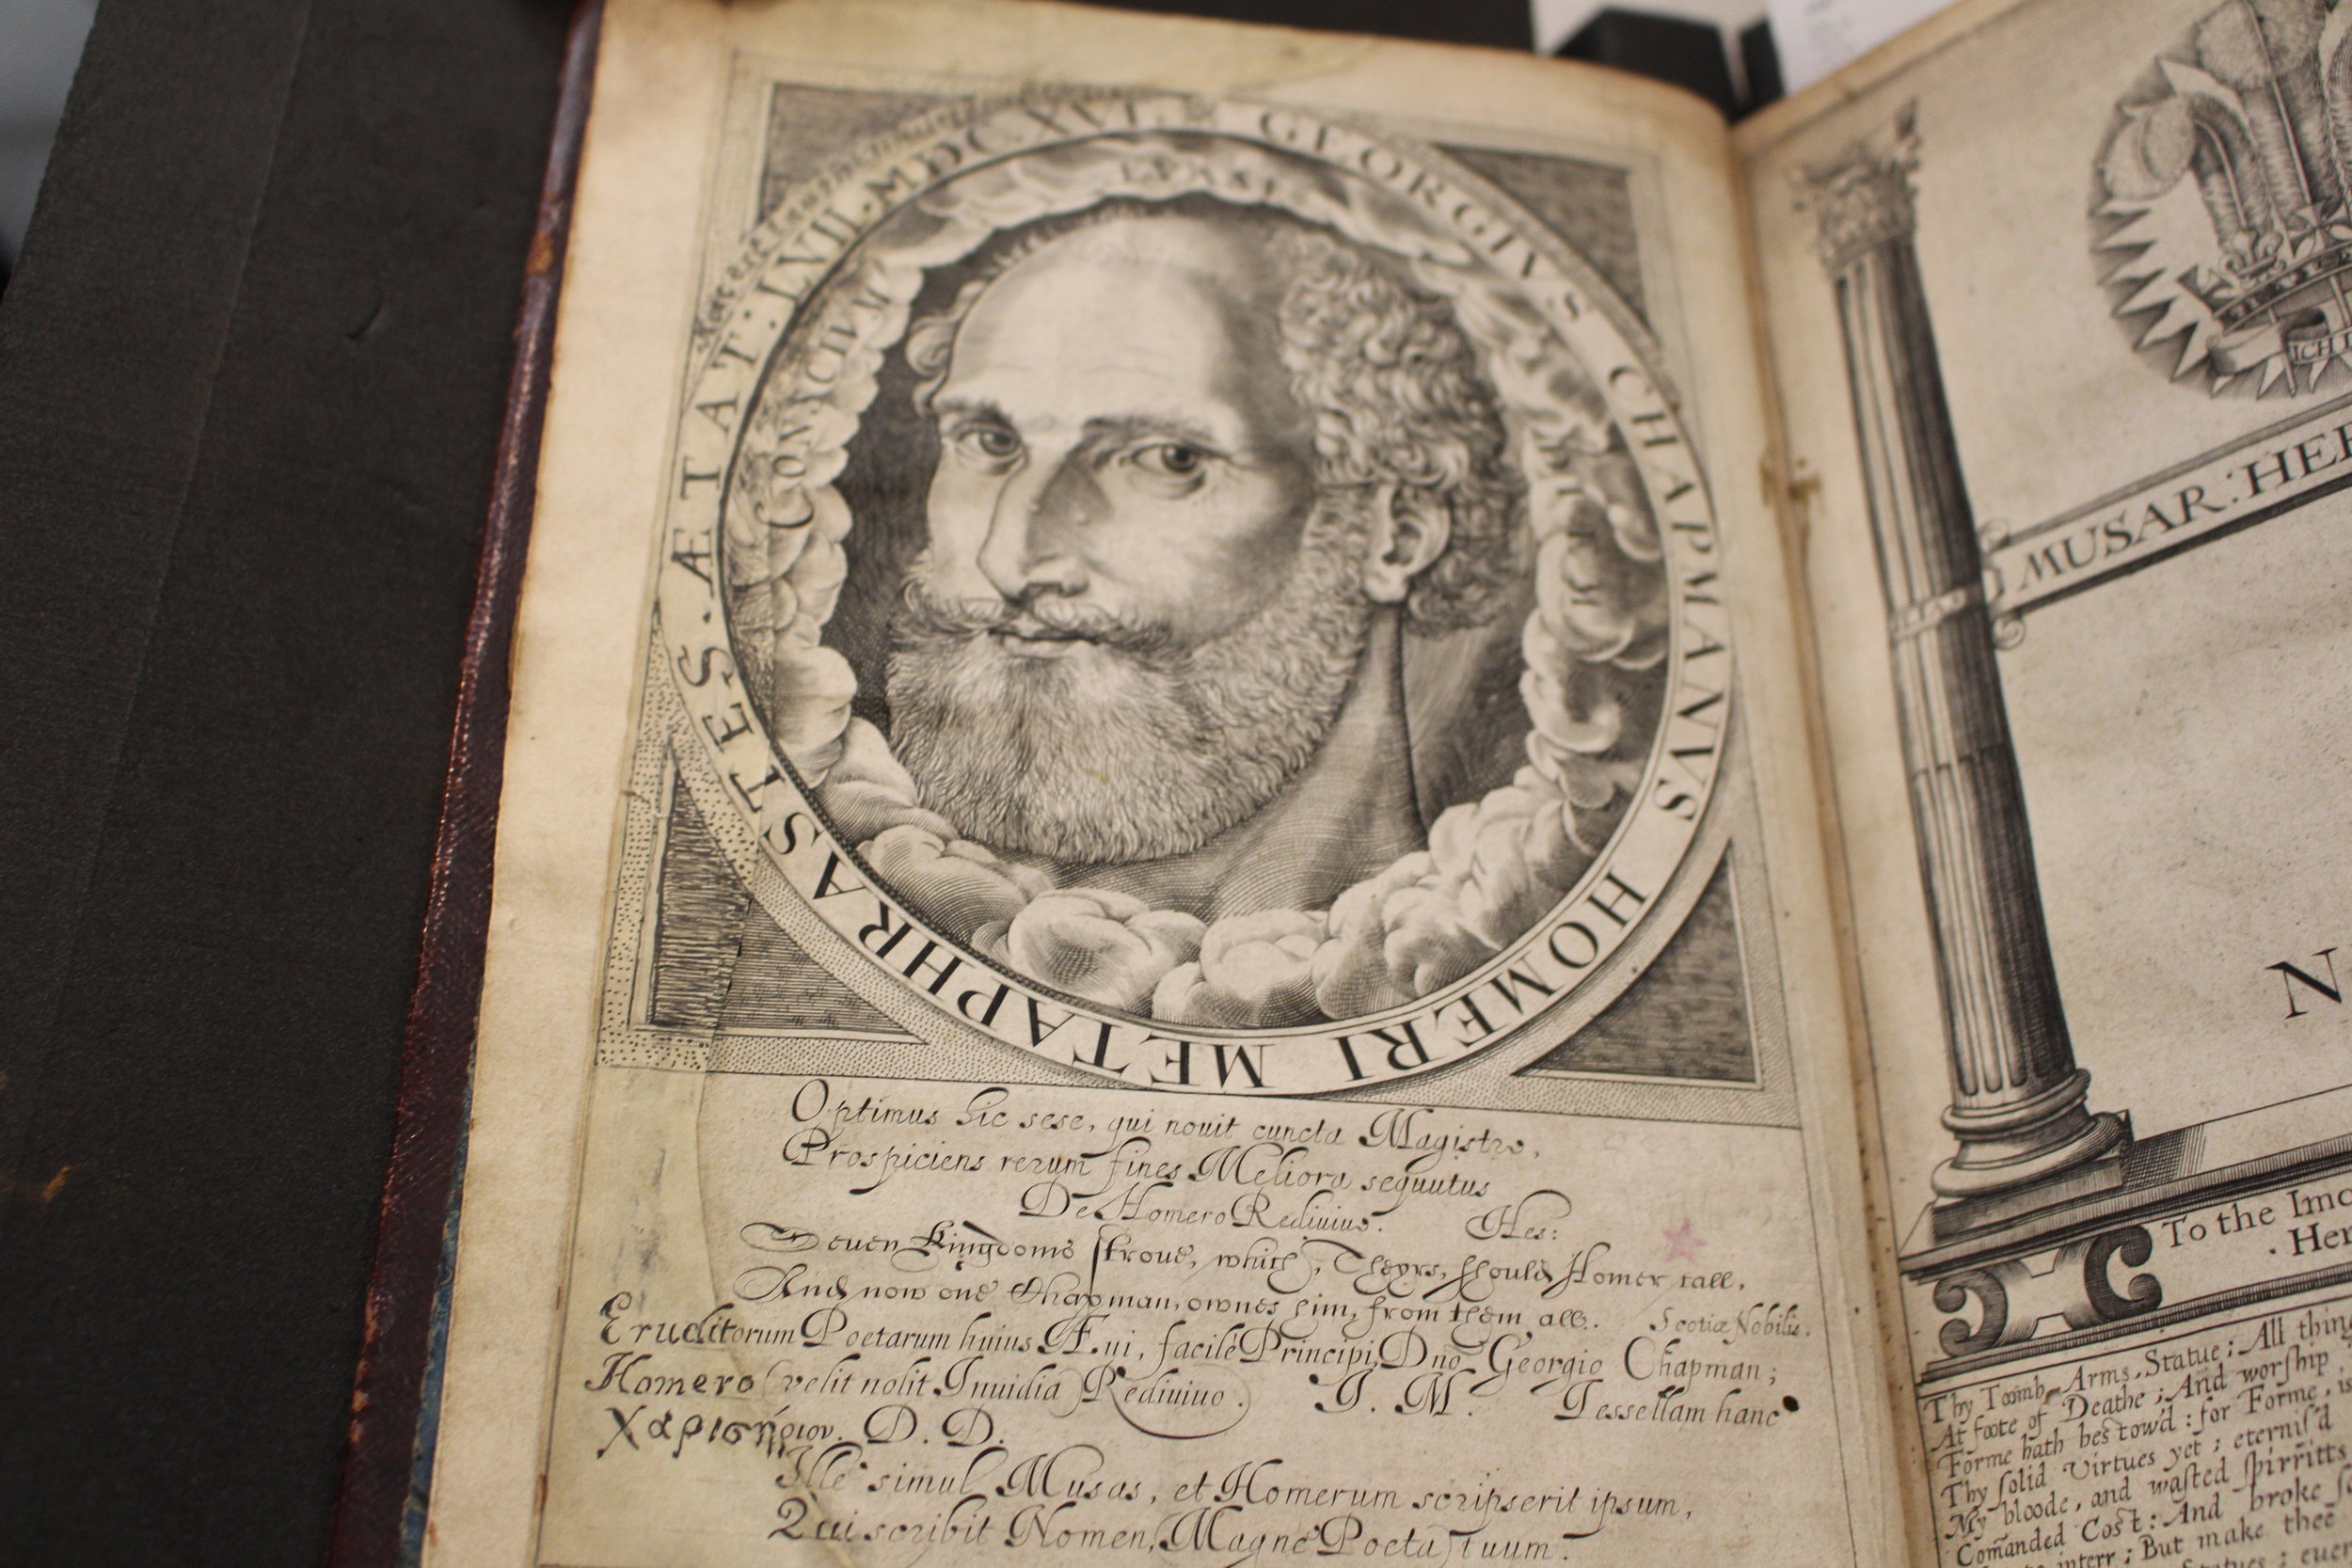 GEORGIVS CHAPMANVS HOMERI METAPHRASTES. ÆTAT: LVII. M.DC.XVI.
CONSCIVM
Optimus hic sese, qui nouit cuncta Magistro,
Prospiciens rerum fines Meliora sequutus
De Homero Rediuiuo. Hes:
Seuen Kingdoms stroue, which, Theyrs, should Homer call,
And now one Chapman, ownes him, from them all. Scotiæ Nobilis.
Eruditorum Poetarum huius Æui, facilè Principi, Dno Georgio Chapman;
Homero (velit nolit Inuidia) Rediuiuo. I. M. Tessellam hanc
χαριστήριον. D. D.
Ille simul Musas, et Homerum scripserit ipsum,
Qui scribit Nomen, (Magne Poeta) tuum.
ICH
MUSAR: HER
N
To the Imo
Her
Thy Toomb, Arms, Statue; All thin
At foote of Deathe; And worship
Forme hath bestow'd: for Forme, is
Thy solid Virtues yet; eternis'd
My bloode, and wasted spirritts
Comanded Cost: And broke
interr; But make thee